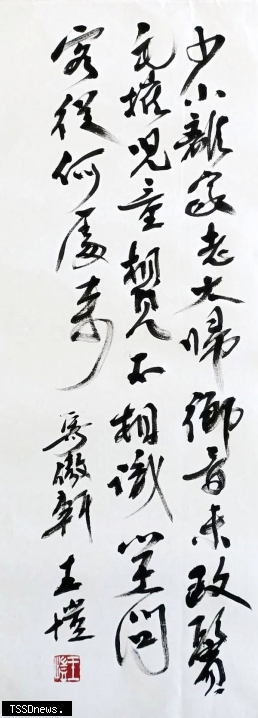 少小離家老大歸鄉音未改鬢
毛摧兒童相見不相識笑問
客從何處來
傲軒王愷
TSSDnews.